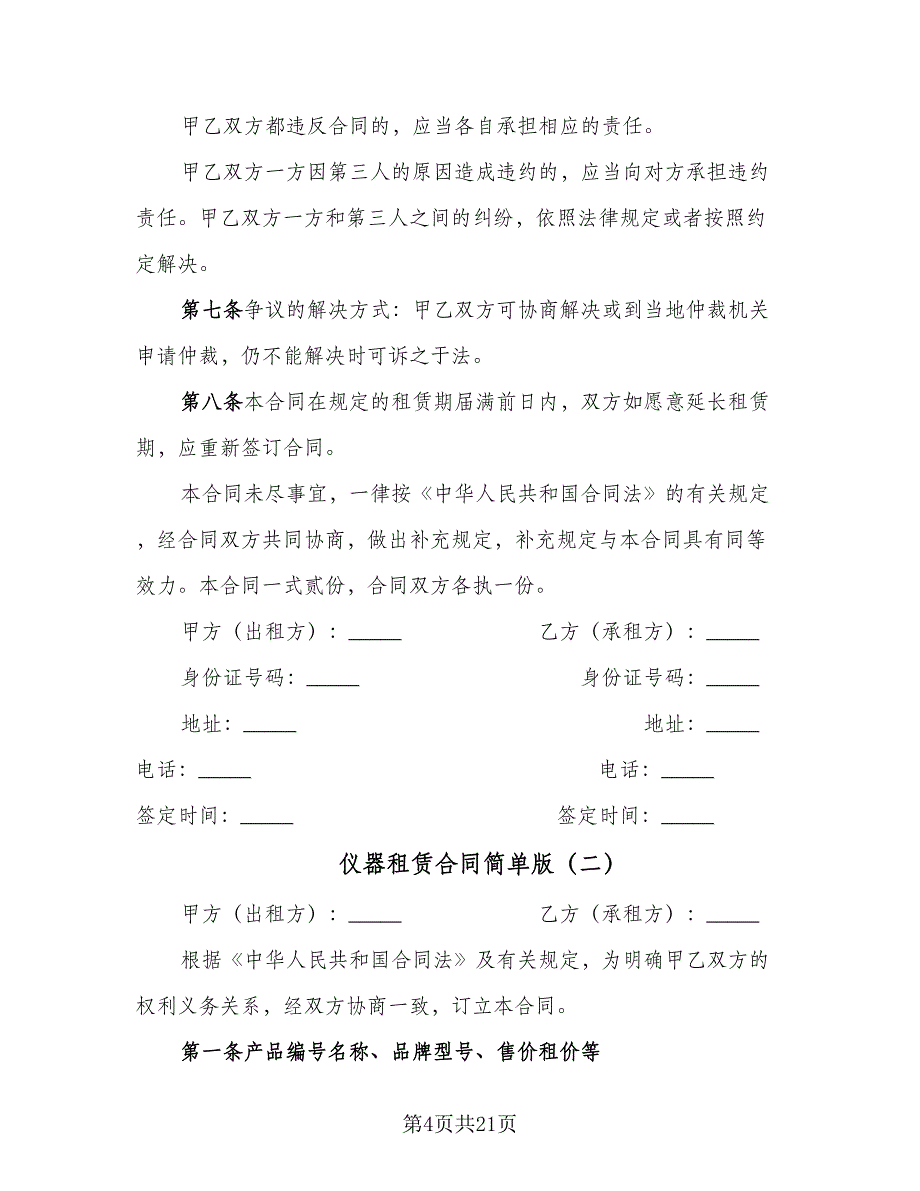 甲乙双方都违反合同的，应当各自承担相应的责任。
甲乙双方一方因第三人的原因造成违约的，应当向对方承担违约
责任。甲乙双方一方和第三人之间的纠纷，依照法律规定或者按照约
定解决。
第七条争议的解决方式：甲乙双方可协商解决或到当地仲裁机关
申请仲裁，仍不能解决时可诉之于法。
第八条本合同在规定的租赁期届满前日内，双方如愿意延长租赁
期，应重新签订合同。
本合同未尽事宜，一律按《中华人民共和国合同法》的有关规定
，经合同双方共同协商，做出补充规定，补充规定与本合同具有同等
效力。本合同一式贰份，合同双方各执一份。
甲方（出租方）：_____ 乙方（承租方）：_____
身份证号码：_____ 身份证号码：_____
地址：_____ 地址：_____
电话：_____ 电话：_____
签定时间：_____ 签定时间：_____
仪器租赁合同简单版（二）
甲方（出租方）：_____ 乙方（承租方）：_____
根据《中华人民共和国合同法》及有关规定，为明确甲乙双方的
权利义务关系，经双方协商一致，订立本合同。
第一条产品编号名称、品牌型号、售价租价等
第4页共21页